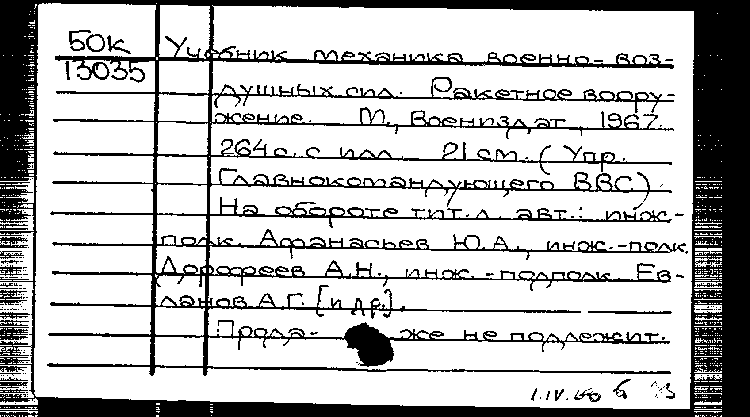 БОК
13035
Учебник механика военно-воз-
душных сил. Ракетное воору-
жение. М., Воениздат, 1967.
264 с. с илл. 21 см. (Упр.
Главнокомандующего ВВС).
На обороте тит. л. авт.: инж.-
полк. Афанасьев Ю.А., инж.-полк.
Дорофеев А.Н., инж.-подполк. Ев-
ланов А.Г. [и др.].
Прода- же не подлежит.